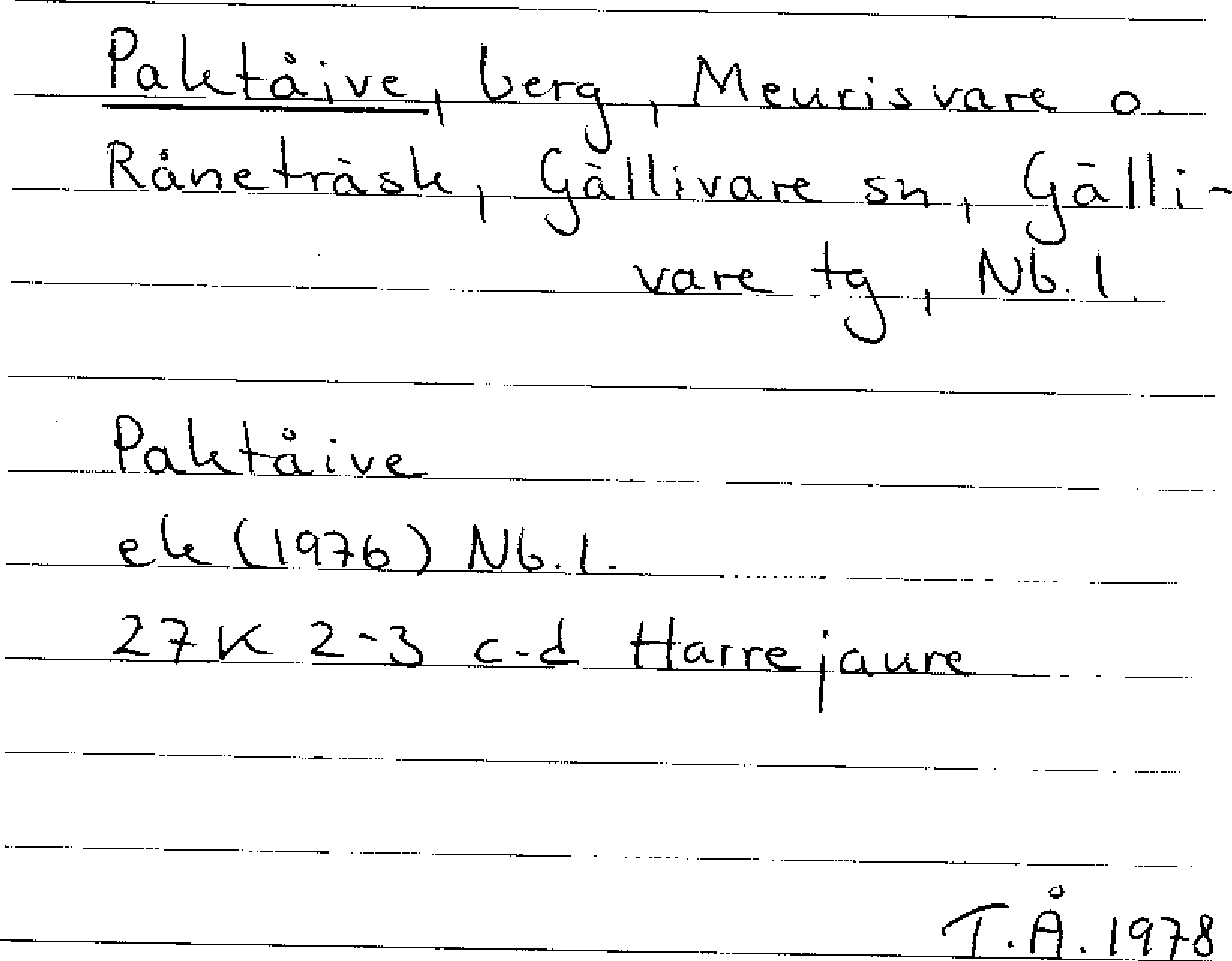 Paktåive, berg, Meurisvare o.
Råneträsk, Gällivare sn, Gälli-
vare tg, Nb. l.
Paktåive
ek (1976) Nb. l.
27K 2-3 c-d Harrejaure
T.Å. 1978